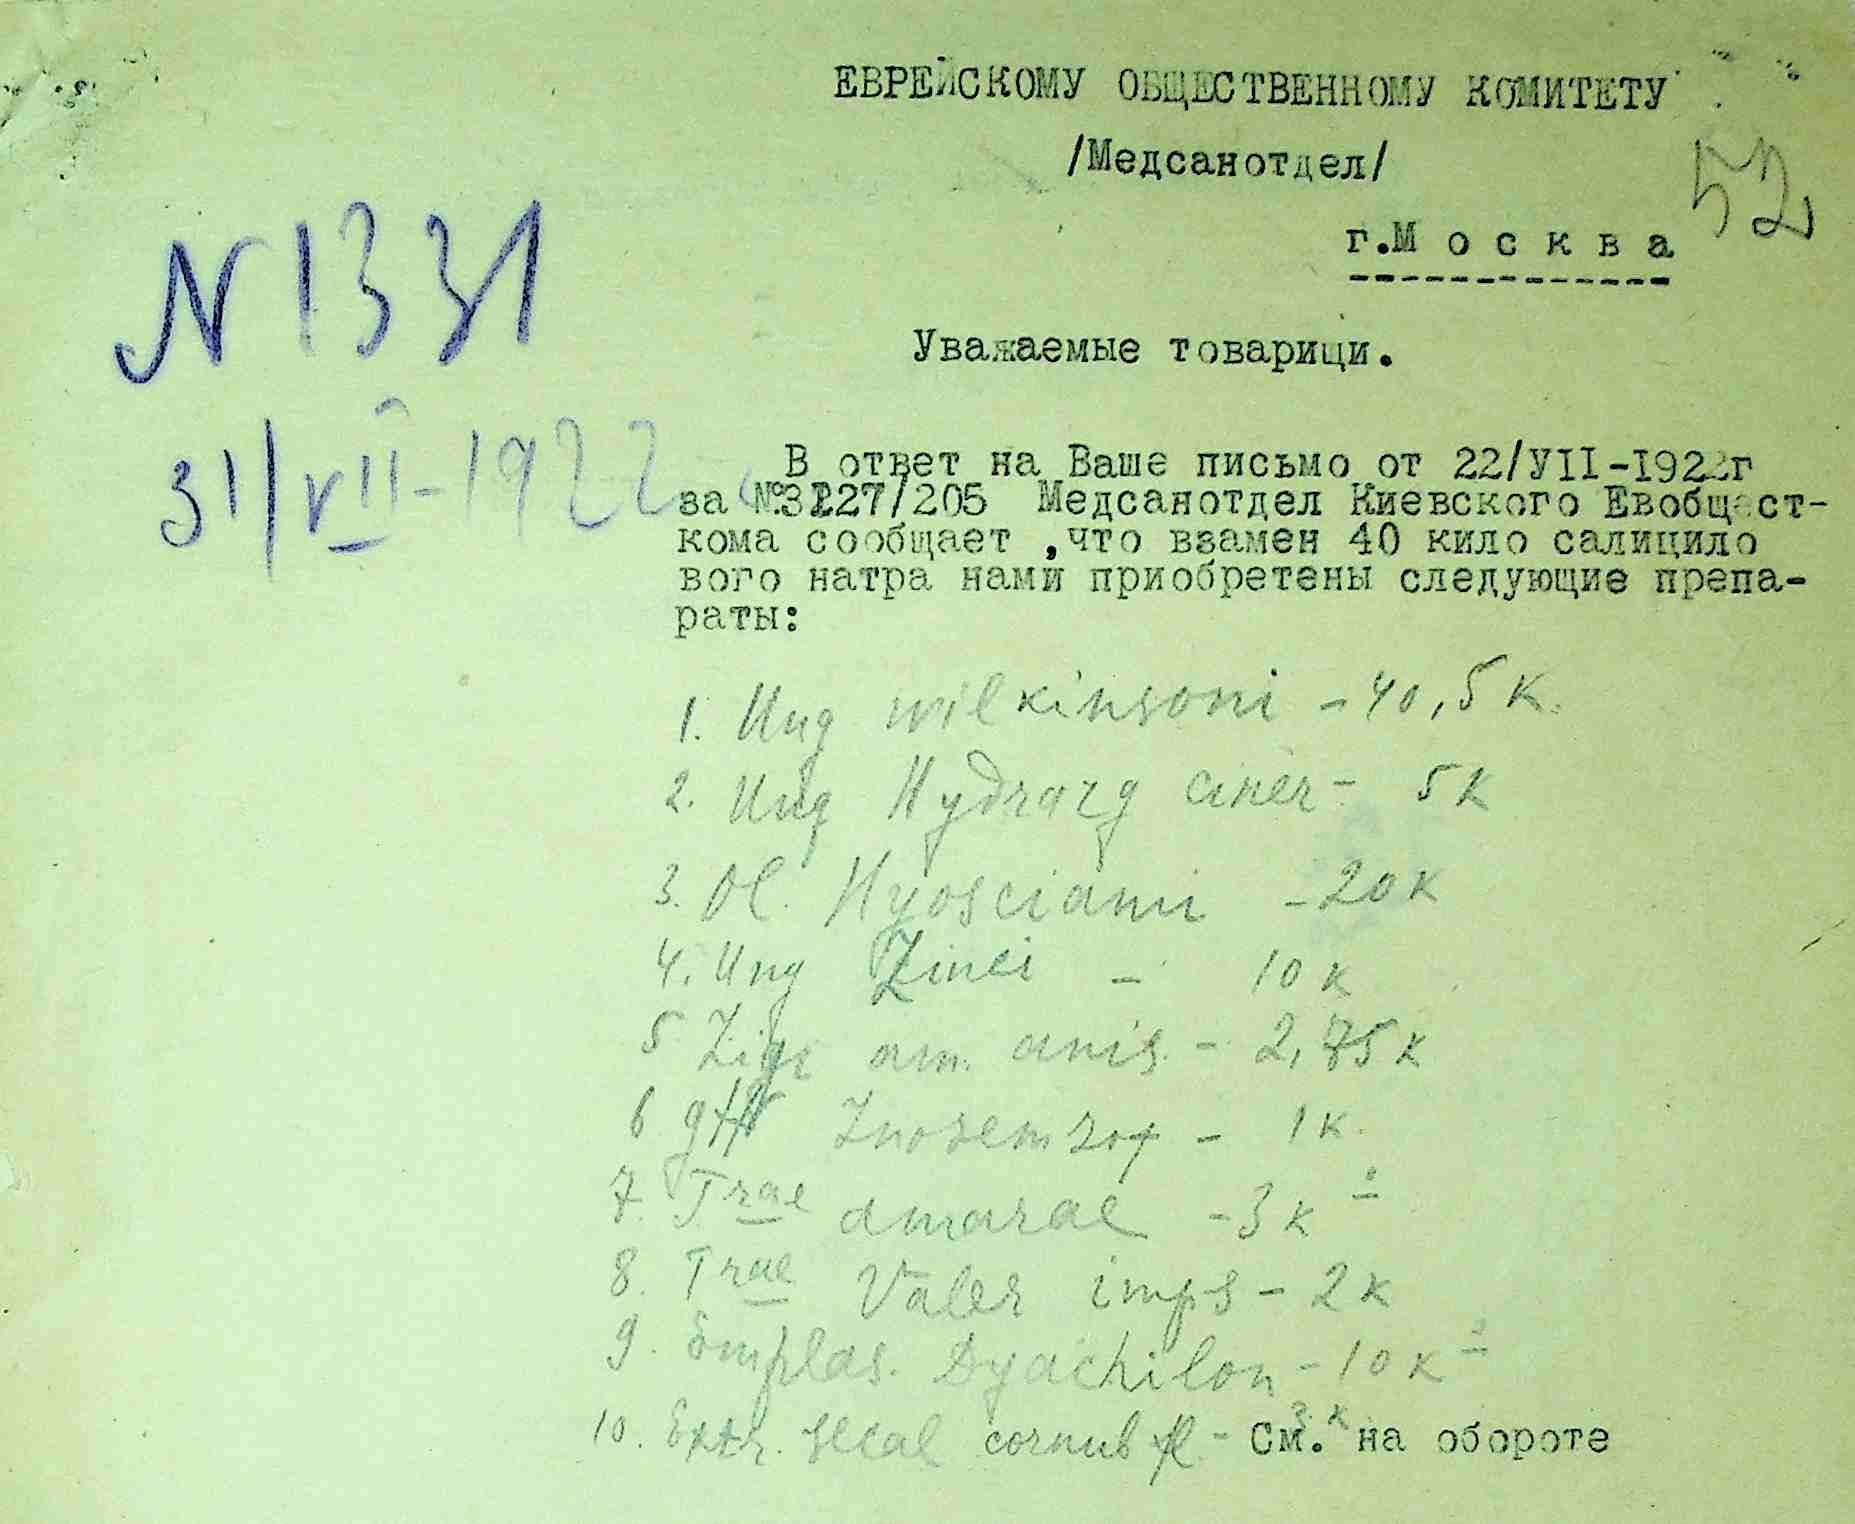 ЕВРЕЙСКОМУ ОБЩЕСТВЕННОМУ КОМИТЕТУ
/Медсанотдел/
52
г.М о с к в а
N 1331
31/VII-1922
Уважаемые товарищи.
В ответ на Ваше письмо от 22/УII-I922г
за №3127/205 Медсанотдел Киевского Евобщест-
кома сообщает ,что взамен 40 кило салицило
вого натра нами приобретены следующие препа-
раты:
1. Ung wilkinsoni - 40,5 к.
2. Ung Hydrarg ciner - 5 к
3. Ol. Hyosciami - 20 к
4. Ung Zinci - 10 к
5 am. anis. - 2,75 к
6 Inosemzof - 1 к.
7. Trae amarae - 3 к
8. Trae Valer imps - 2 к
9. Emplas. Dyachilon - 10 к
10. Extr. Secal cornub fl - 3 к
См. на обороте